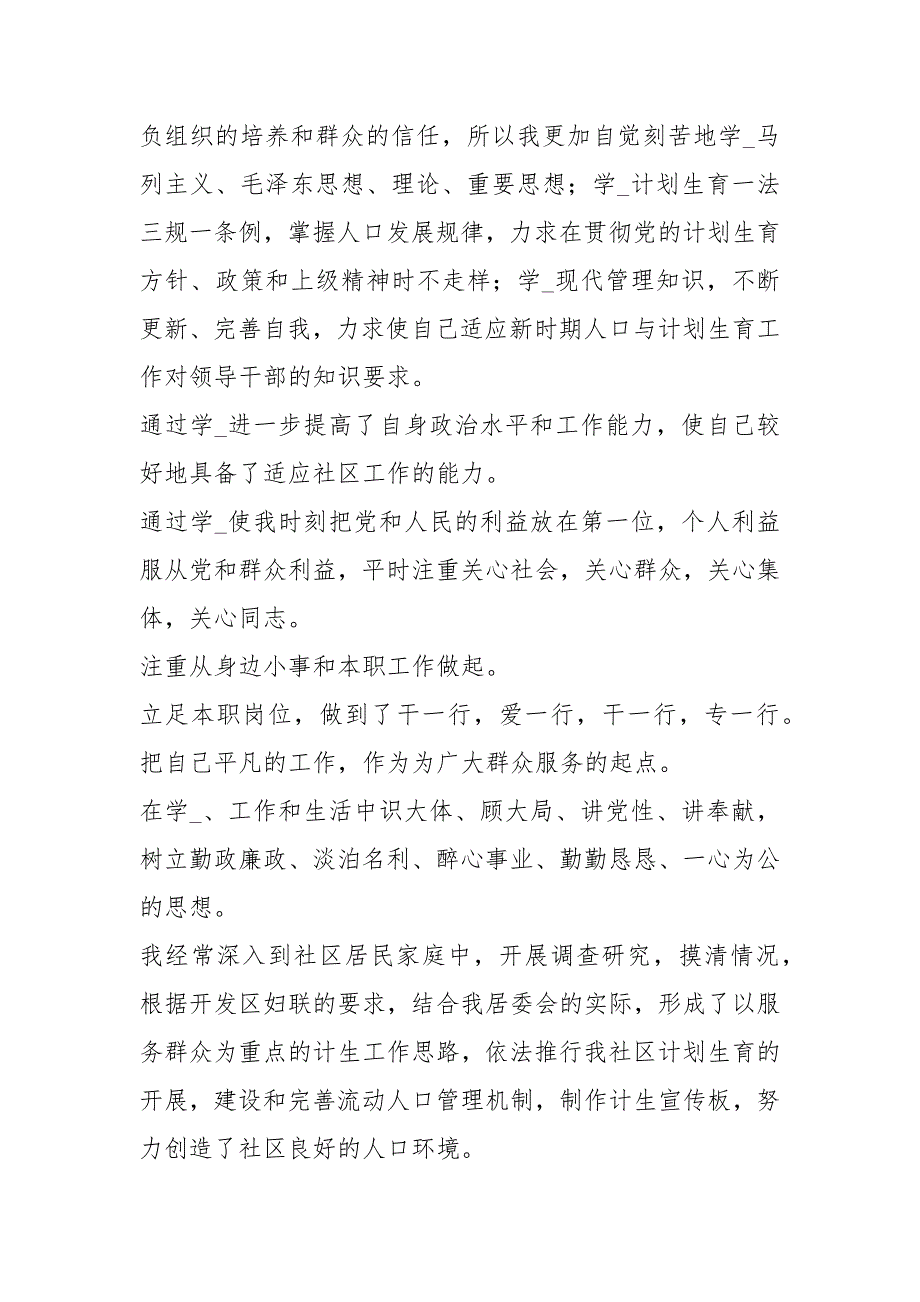 负组织的培养和群众的信任，所以我更加自觉刻苦地学_马
列主义、毛泽东思想、理论、重要思想；学_计划生育一法
三规一条例，掌握人口发展规律，力求在贯彻党的计划生育
方针、政策和上级精神时不走样；学_现代管理知识，不断
更新、完善自我，力求使自己适应新时期人口与计划生育工
作对领导干部的知识要求。
通过学_进一步提高了自身政治水平和工作能力，使自己较
好地具备了适应社区工作的能力。
通过学_使我时刻把党和人民的利益放在第一位，个人利益
服从党和群众利益，平时注重关心社会，关心群众，关心集
体，关心同志。
注重从身边小事和本职工作做起。
立足本职岗位，做到了干一行，爱一行，干一行，专一行。
把自己平凡的工作，作为为广大群众服务的起点。
在学_、工作和生活中识大体、顾大局、讲党性、讲奉献，
树立勤政廉政、淡泊名利、醉心事业、勤勤恳恳、一心为公
的思想。
我经常深入到社区居民家庭中，开展调查研究，摸清情况，
根据开发区妇联的要求，结合我居委会的实际，形成了以服
务群众为重点的计生工作思路，依法推行我社区计划生育的
开展，建设和完善流动人口管理机制，制作计生宣传板，努
力创造了社区良好的人口环境。